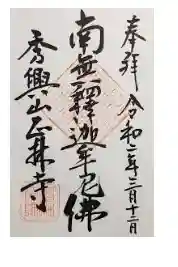 奉拜 令和二年三月十二日
南無釋迦牟尼佛
秀興山正林寺